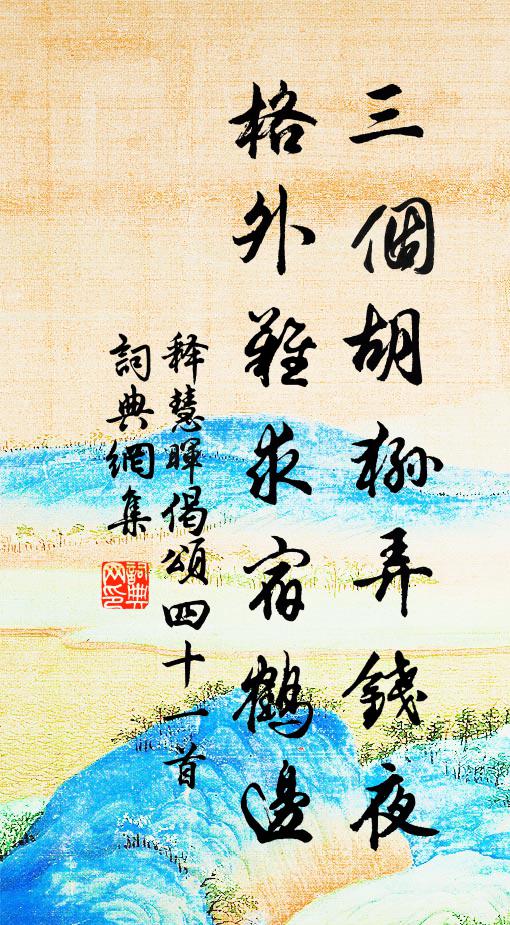 三個胡猻弄錢夜
格外難求宿鶴邊
釋慧暉偈頌四十一首
詞典網集
詞典
网印